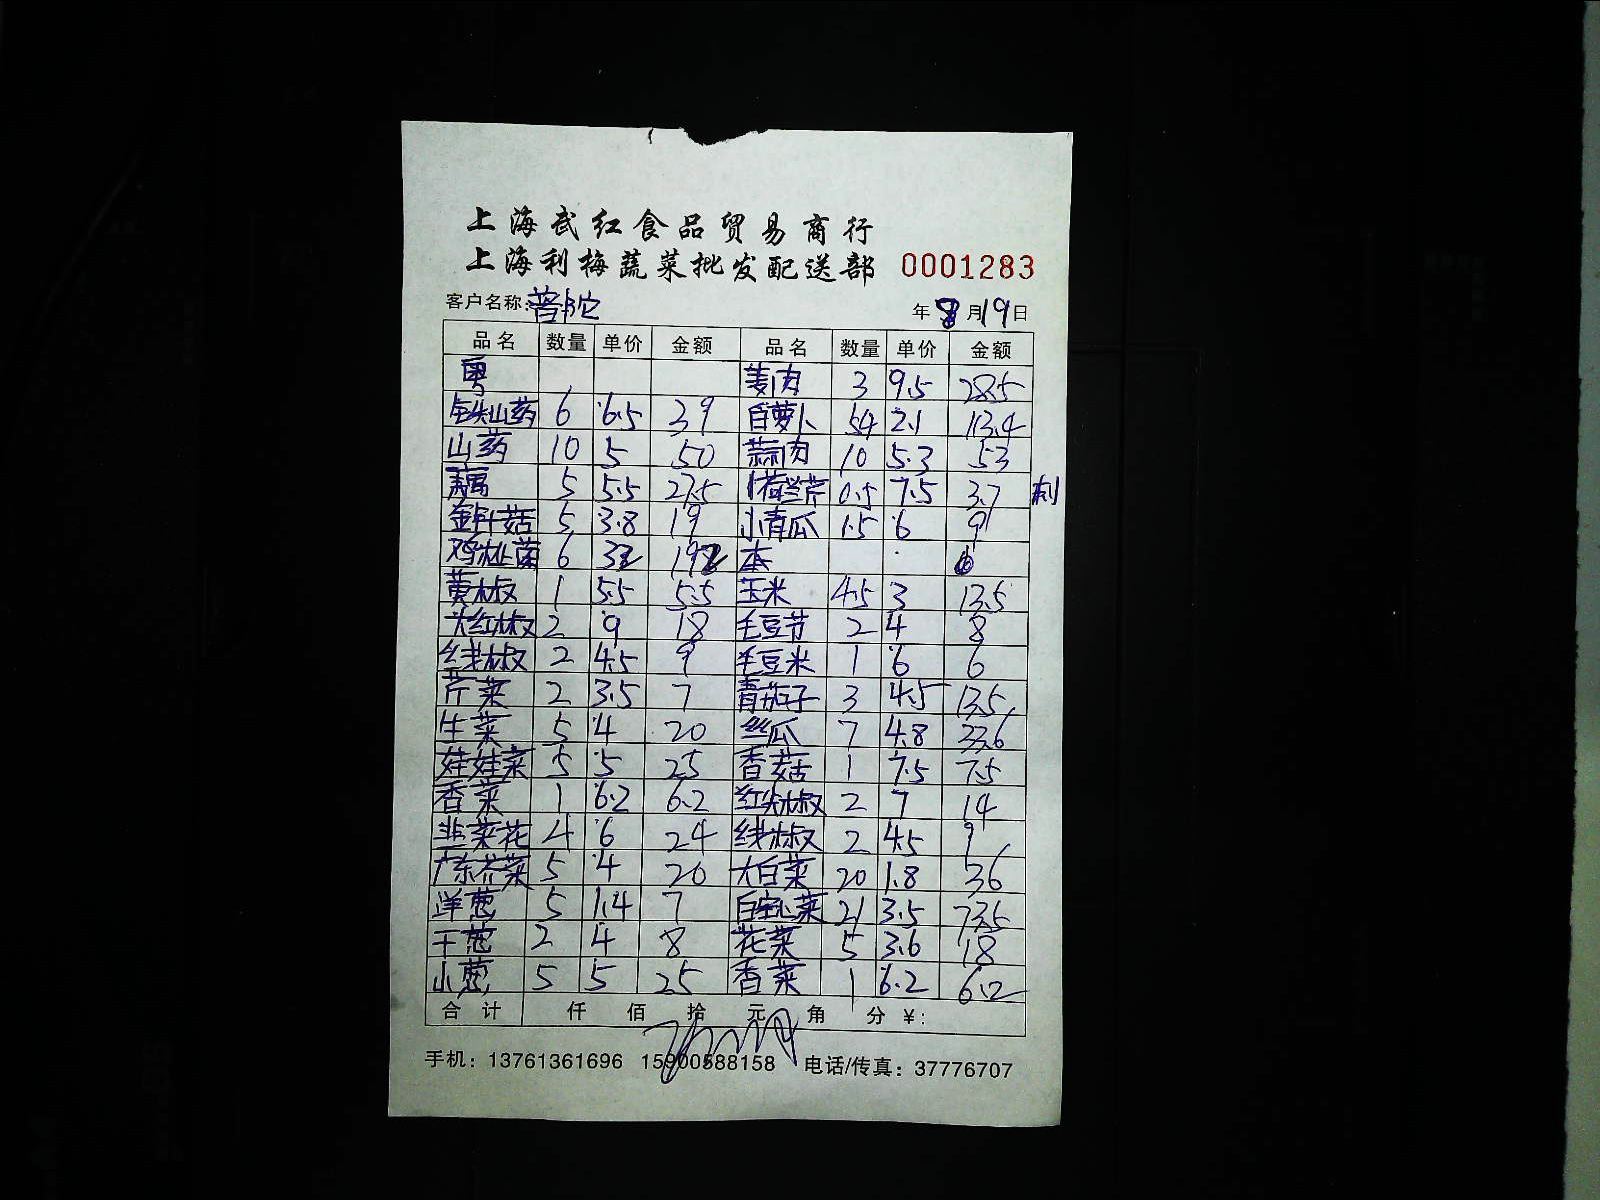 上海武红食品贸易商行
上海利梅蔬菜批发配送部 0001283
客户名称:普陀 年8月19日
品名 数量 单价 金额 品名 数量 单价 金额
粤 姜肉 3 9.5 28.5
铁山药 6 6.5 39 白萝卜 54 2.1 113.4
山药 10 5 50 蒜肉 10 5.3 53
藕 5 5.5 27.5 荷兰芹 0.5 7.5 3.7
金针菇 5 3.8 19 小青瓜 1.5 6 9
鸡枞菌 6 32 192 本 6
黄椒 1 5.5 5.5 玉米 4.5 3 13.5
大红椒 2 9 18 毛豆节 2 4 8
线椒 2 4.5 9 毛豆米 1 6 6
芹菜 2 3.5 7 青茄子 3 4.5 13.5
生菜 5 4 20 丝瓜 7 4.8 33.6
娃娃菜 5 5 25 香菇 1 7.5 7.5
香菜 1 6.2 6.2 红尖椒 2 7 14
韭菜花 4 6 24 线椒 2 4.5 9
广东芥菜 5 4 20 大白菜 20 1.8 36
洋葱 5 1.4 7 白空心菜 21 3.5 73.5
干葱 2 4 8 花菜 5 3.6 18
小葱 5 5 25 香菜 1 6.2 6.2
合计 仟 佰 拾 元 角 分 ¥:
手机：13761361696 15900588158 电话/传真：37776707